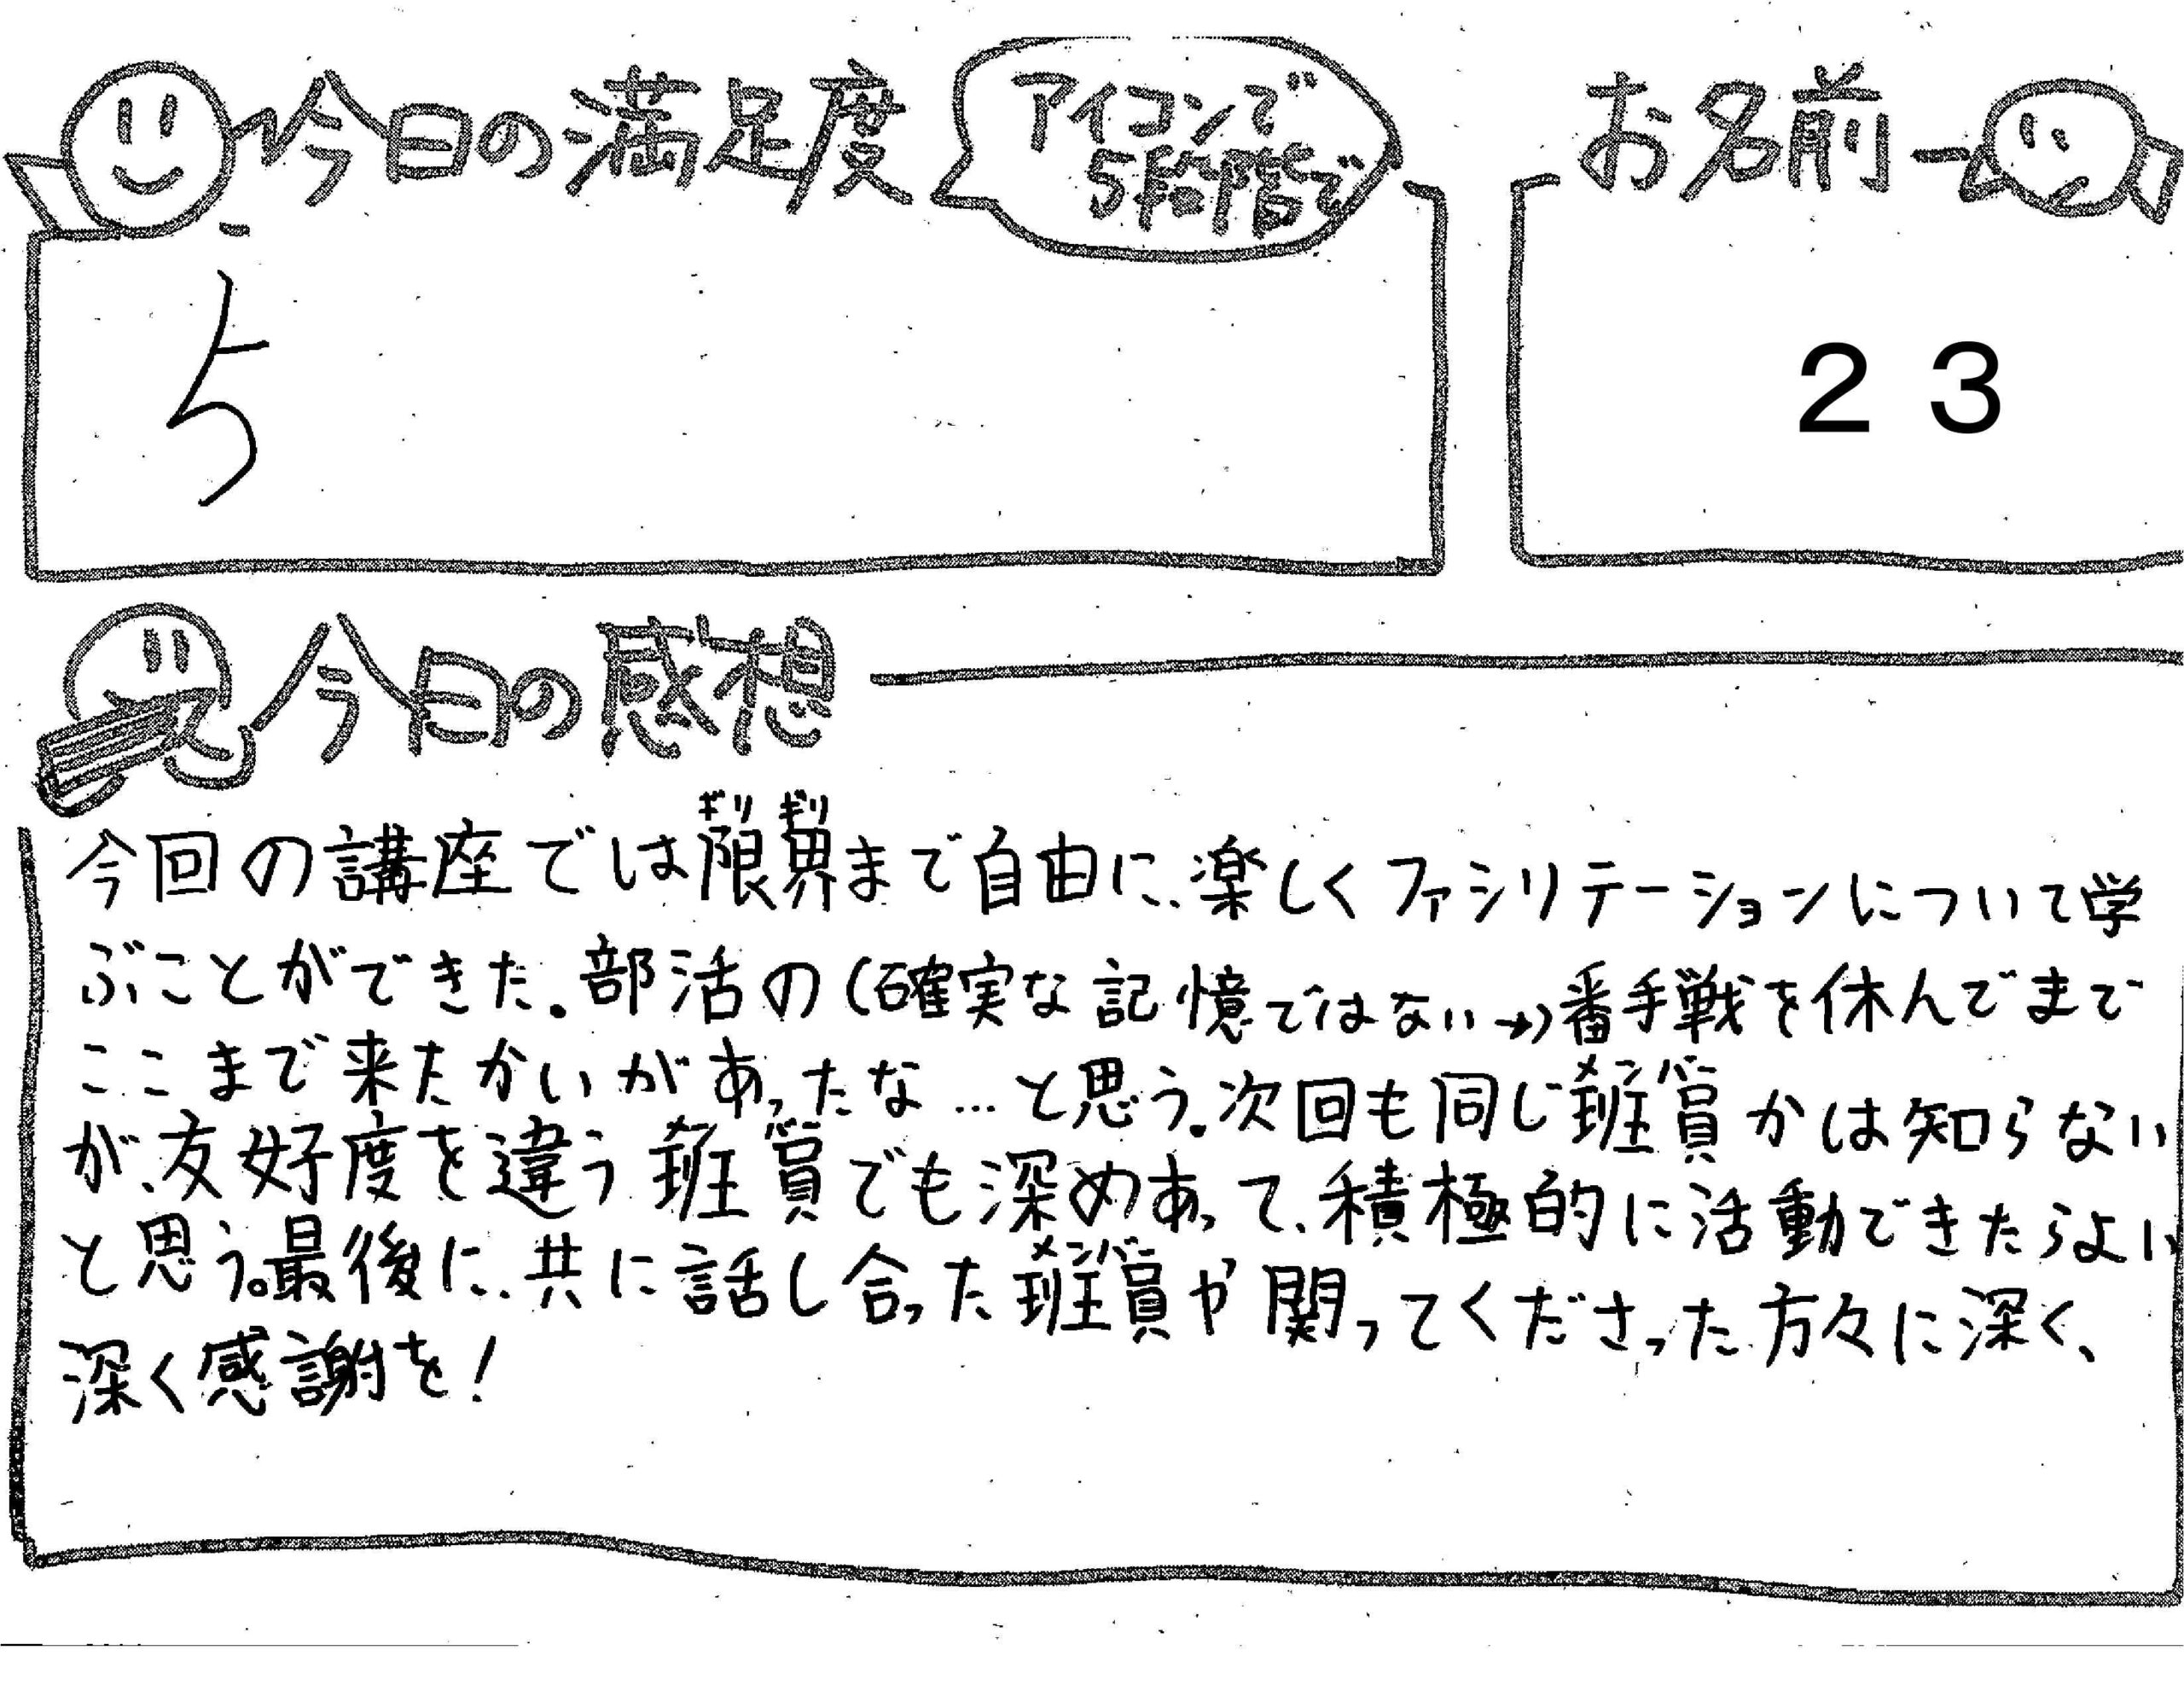 今日の満足度
アイコンで
5段階で
お名前
5
２３
今日の感想
ギリ ギリ
今回の講座では限界まで自由に、楽しくファシリテーションについて学
ぶことができた。部活の(確実な記憶ではない→)番手戦を休んでまで
ここまで来たかいがあったな…と思う。次回も同じ班員かは知らない
メンバー
が、友好度を違う班員でも深めあって、積極的に活動できたらよい
と思う。最後に、共に話し合った班員や関ってくださった方々に深く、
メンバー
深く感謝を!